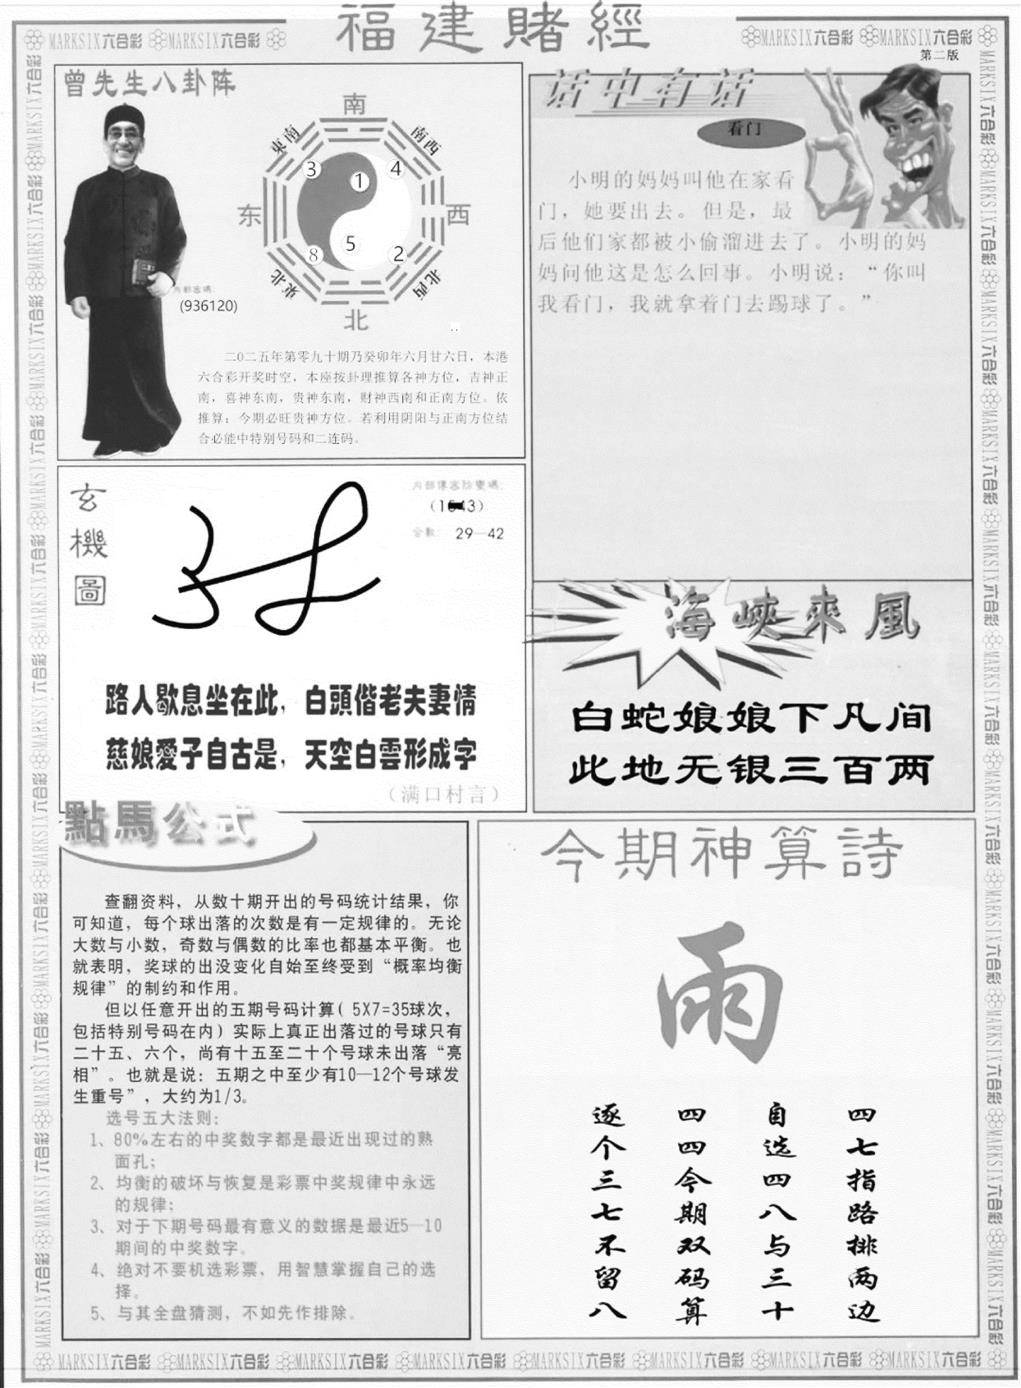 福建賭經
MARKSIX六合彩 MARKSIX六合彩
MARKSIX六合彩 MARKSIX六合彩
第二版
曾先生八卦阵
南
東南
南西
3
1
4
东
西
8
5
2
東北
北西
北
(936120)
二0二五年第零九十期乃癸卯年六月廿六日，本港
六合彩开奖时空，本座按卦理推算各神方位，吉神正
南，喜神东南，贵神东南，财神西南和正南方位。依
推算：今期必旺贵神方位。若利用阴阳与正南方位结
合必能中特别号码和二连码。
话中有话
看门
小明的妈妈叫他在家看
门，她要出去。但是，最
后他们家都被小偷溜进去了。小明的妈
妈问他这是怎么回事。小明说：“你叫
我看门，我就拿着门去踢球了。”
玄機圖
29—42
路人歇息坐在此，白頭偕老夫妻情
慈娘愛子自古是，天空白雲形成字
（满口村言）
海峽來風
白蛇娘娘下凡间
此地无银三百两
點馬公式
查翻资料，从数十期开出的号码统计结果，你
可知道，每个球出落的次数是有一定规律的。无论
大数与小数，奇数与偶数的比率也都基本平衡。也
就表明，奖球的出没变化自始至终受到“概率均衡
规律”的制约和作用。
但以任意开出的五期号码计算( 5X7=35球次，
包括特别号码在内）实际上真正出落过的号球只有
二十五、六个，尚有十五至二十个号球未出落“亮
相”。也就是说：五期之中至少有10—12个号球发
生重号”，大约为1/3。
选号五大法则：
1、80%左右的中奖数字都是最近出现过的熟
面孔；
2、均衡的破坏与恢复是彩票中奖规律中永远
的规律；
3、对于下期号码最有意义的数据是最近5—10
期间的中奖数字。
4、绝对不要机选彩票，用智慧掌握自己的选
择。
5、与其全盘猜测，不如先作排除。
今期神算詩
雨
四七指路排两边
自选四八与三十
四四今期双码算
逐个三七不留八
MARKSIX六合彩 MARKSIX六合彩 MARKSIX六合彩 MARKSIX六合彩 MARKSIX六合彩 MARKSIX六合彩 MARKSIX六合彩 MARKSIX六合彩